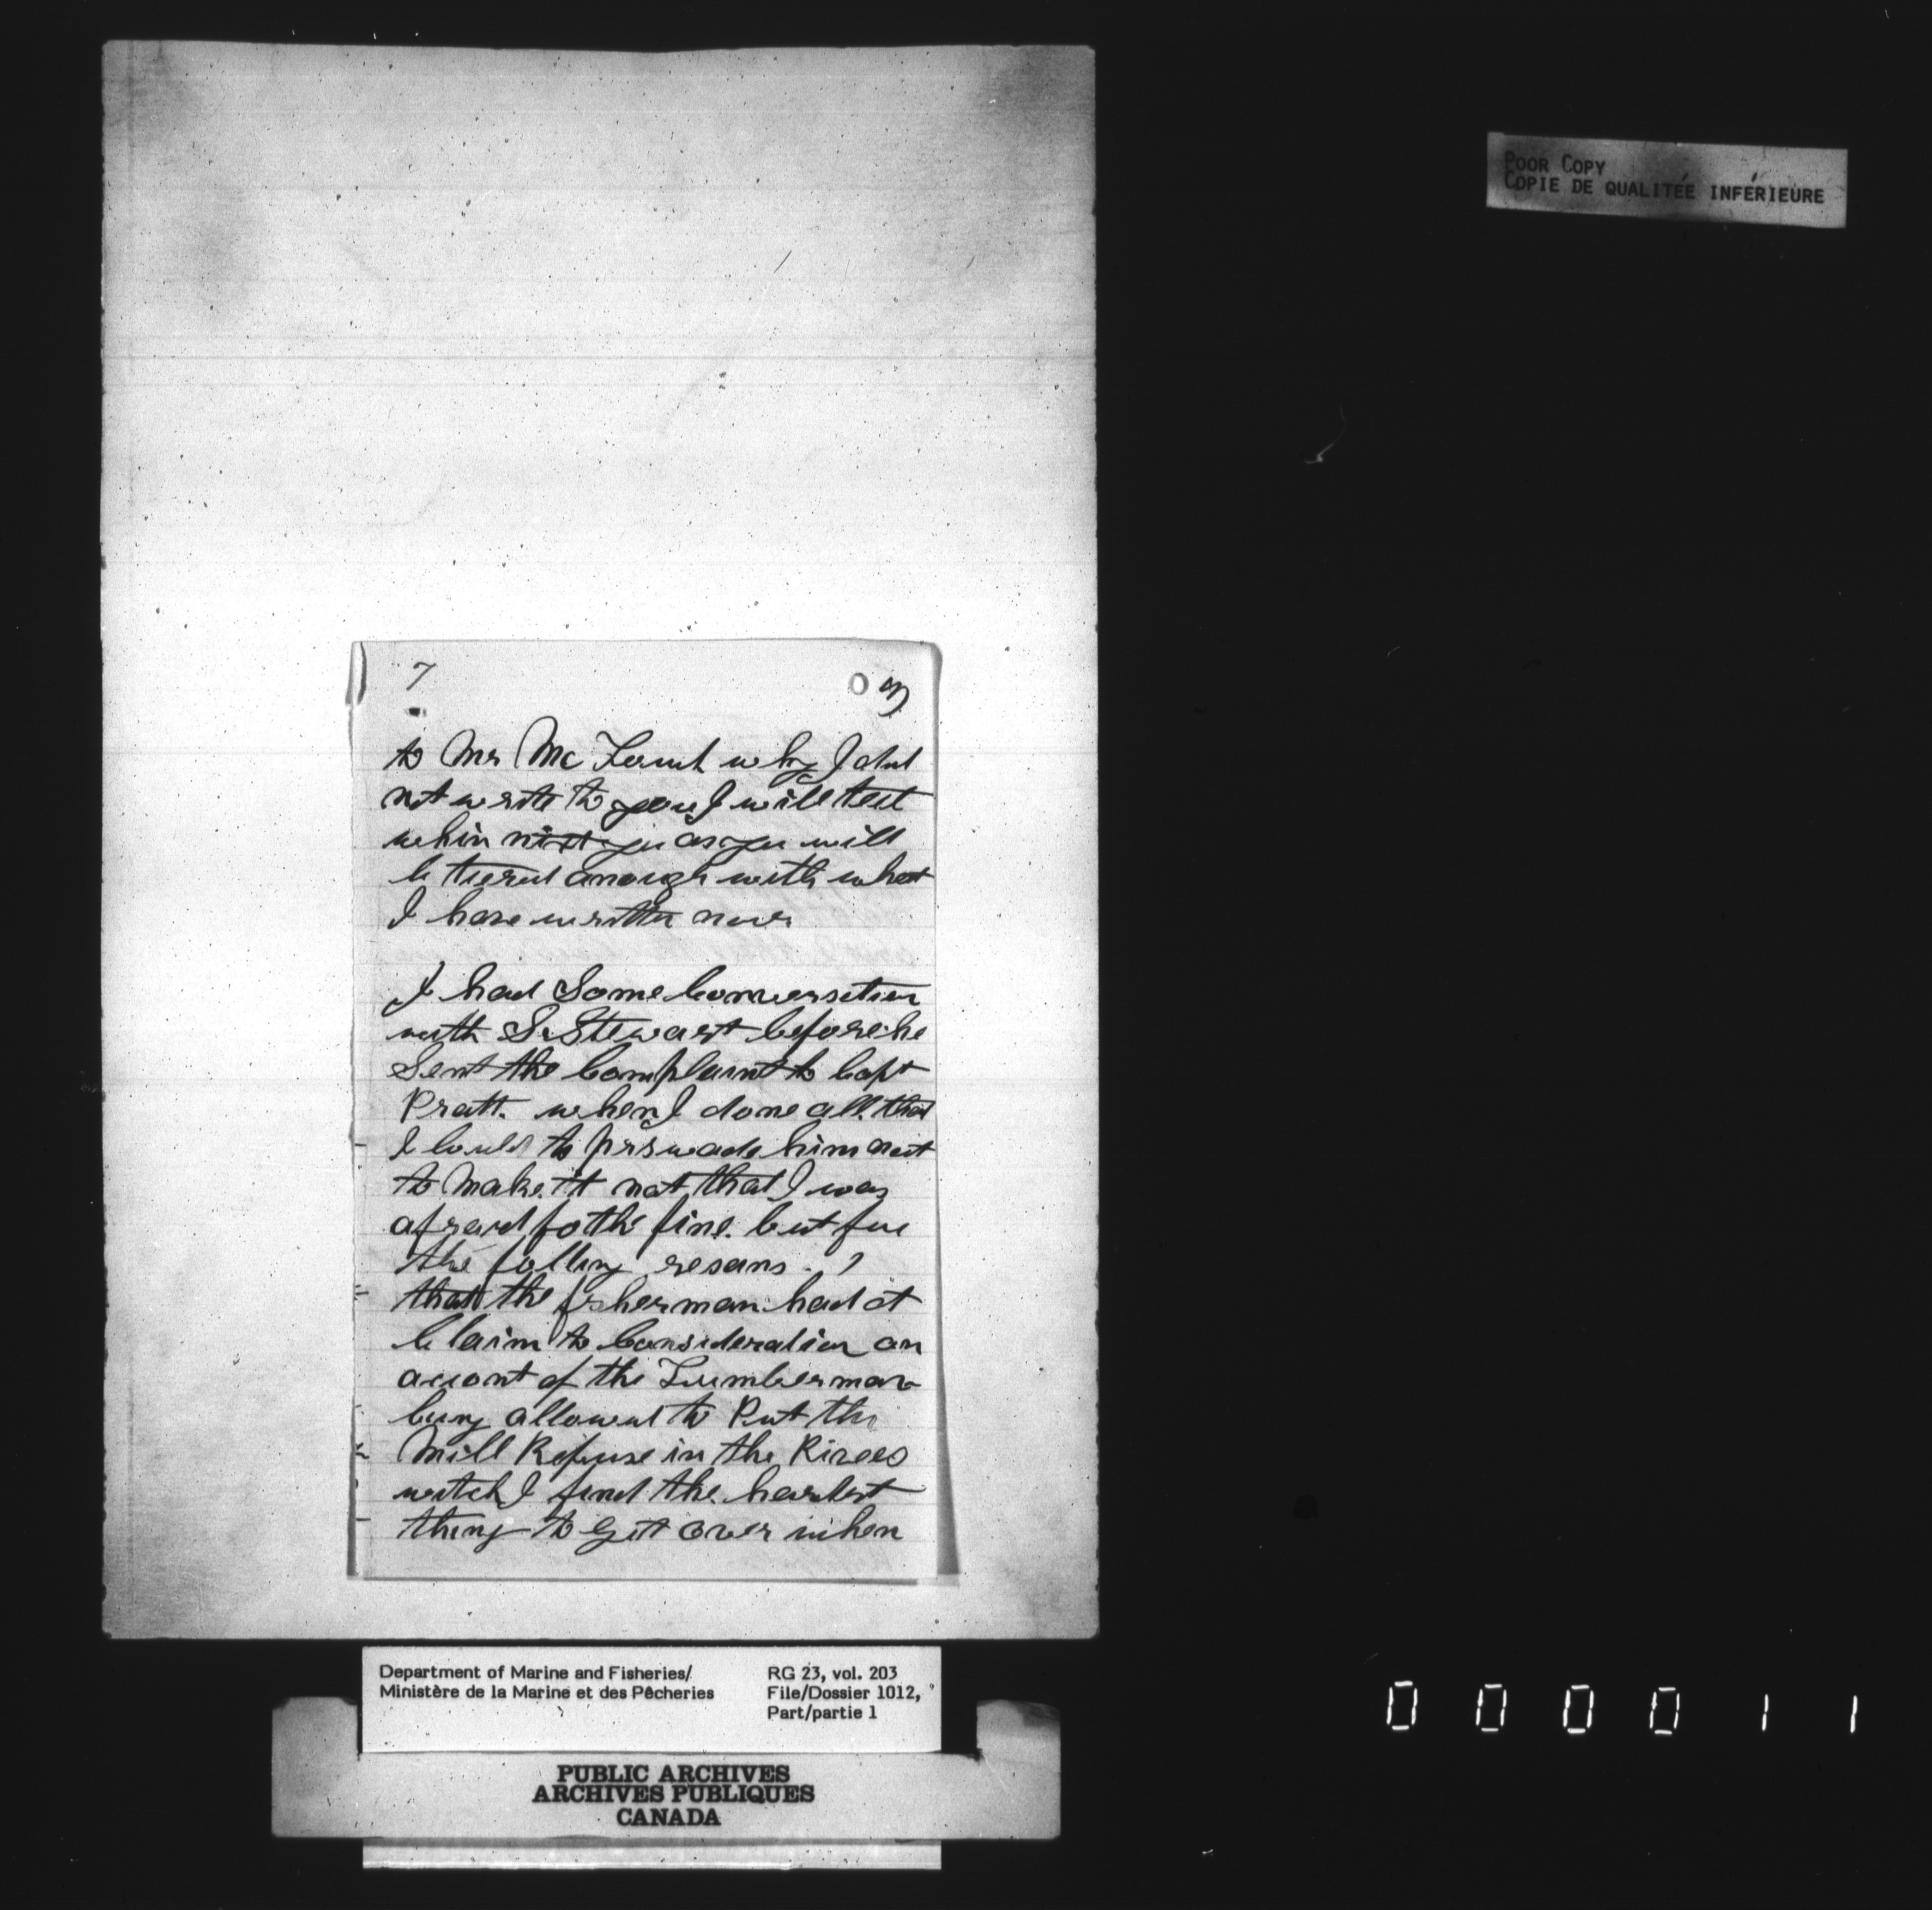 POOR COPY
COPIE DE QUALITÉE INFÉRIEURE
7
to Mr Mc why I did
not write to you I will tell
whin you as you will
b tierd anough with what
I have written now
I had Some Conversation
with S. Stewart before he
Sent the Complaint to Capt
Pratt. when I done all that
I Could to prswade him not
to Make it not that I was
afraid fo the fine. but for
the folling resans.
that the fisherman had at
Claim to Consideration on
acont of the Lumberman
being allowed to Put the
Mill Refuse in the Rivers
witch I find the hardest
thing to Get over when
Department of Marine and Fisheries/
Ministère de la Marine et des Pêcheries
RG 23, vol. 203
File/Dossier 1012,
Part/partie 1
PUBLIC ARCHIVES
ARCHIVES PUBLIQUES
CANADA
000011